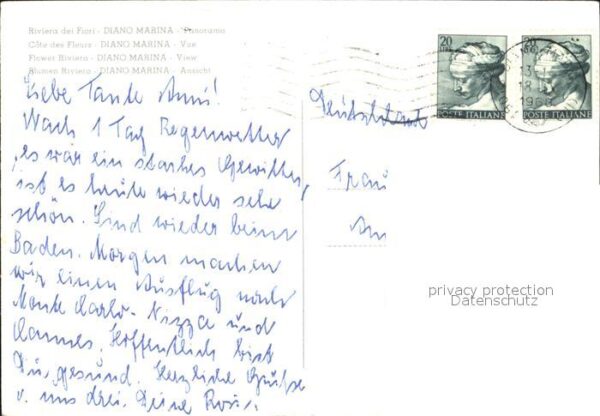 Riviera dei Fiori - DIANO MARINA - Panorama
Côte des Fleurs - DIANO MARINA - Vue
Flower Riviera - DIANO MARINA - View
Blumen Riviera - DIANO MARINA - Ansicht
20
POSTE ITALIANE
20
POSTE ITALIANE
1968
Liebe Tante Anni!
Nach 1 Tag Regenwetter
, es war ein starkes Gewitter,
ist es heute wieder sehr
schön. Sind wieder beim
Baden. Morgen machen
wir einen Ausflug nach
Monte Carlo - Nizza und
Cannes. Hoffentlich bist
Du gesund. Herzliche Grüße
v. uns drei. Deine
Deutschland
Frau
An
privacy protection
Datenschutz